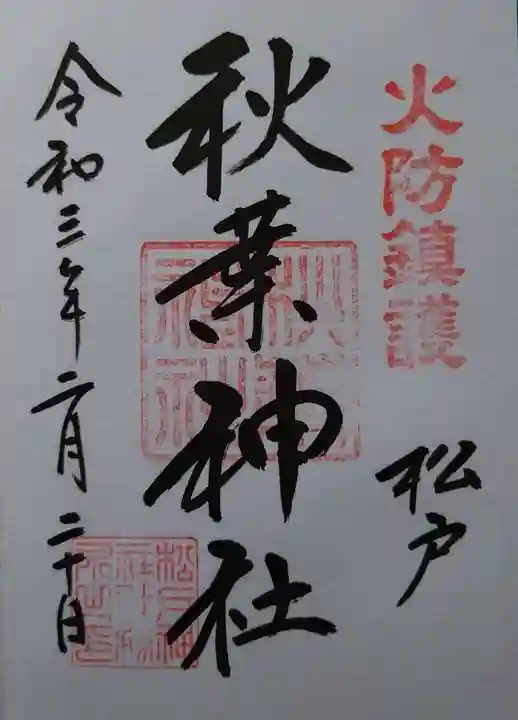 火防鎮護
松戸
秋葉神社
令和三年二月二十日